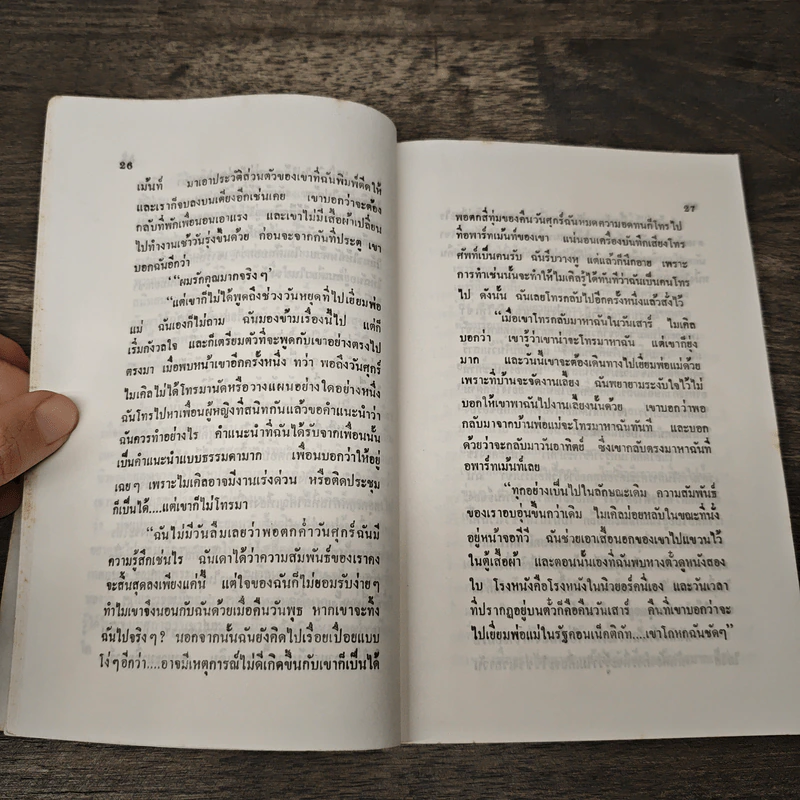 26
เม้นท์ มาเอาประวัติส่วนตัวของเขาที่ฉันพิมพ์ดีดให้
และเราก็จบลงบนเตียงอีกเช่นเคย เขาบอกว่าจะต้อง
กลับที่พักเพื่อนอนเอาแรง และเขาไม่มีเสื้อผ้าเปลี่ยน
ไปทำงานเช้าวันรุ่งขึ้นด้วย ก่อนจะจากกันที่ประตู เขา
บอกฉันอีกว่า
"ผมรักคุณมากจริงๆ'
"แต่เขาก็ไม่ได้พูดถึงช่วงวันหยุดที่ไปเยี่ยมพ่อ
แม่ ฉันเองก็ไม่ถาม ฉันมองข้ามเรื่องนี้ไป แต่ก็
เริ่มกังวลใจ และก็เตรียมตัวที่จะพูดกับเขาอย่างตรงไป
ตรงมา เมื่อพบหน้าเขาอีกครั้งหนึ่ง ทว่า พอถึงวันศุกร์
ไมเคิลไม่ได้โทรมานัดหรือวางแผนอย่างใดอย่างหนึ่ง
ฉันโทรไปหาเพื่อนผู้หญิงที่สนิทกันแล้วขอคำแนะนำว่า
ฉันควรทำอย่างไร คำแนะนำที่ฉันได้รับจากเพื่อนนั้น
เป็นคำแนะนำแบบธรรมดามาก เพื่อนบอกว่าให้อยู่
เฉยๆ เพราะไมเคิลอาจมีงานเร่งด่วน หรือติดประชุม
ก็เป็นได้....แต่เขาก็ไม่โทรมา
"ฉันไม่มีวันลืมเลยว่าพอตกค่ำวันศุกร์ฉันมี
ความรู้สึกเช่นไร ฉันเดาได้ว่าความสัมพันธ์ของเราคง
จะสิ้นสุดลงเพียงแค่นี้ แต่ใจของฉันก็ไม่ยอมรับง่ายๆ
ทำไมเขาจึงนอนกับฉันด้วยเมื่อคืนวันพุธ หากเขาจะทิ้ง
ฉันไปจริงๆ? นอกจากนั้นฉันยังคิดไปเรื่อยเปื่อยแบบ
โง่ๆอีกว่า....อาจมีเหตุการณ์ไม่ดีเกิดขึ้นกับเขาก็เป็นได้
27
พอตกสี่ทุ่มของคืนวันศุกร์ฉันหมดความอดทนก็โทรไป
ที่อพาร์ทเม้นท์ของเขา แน่นอนเครื่องบันทึกเสียงโทร
ศัพท์เป็นคนรับ ฉันรีบวางหู แต่แล้วก็นึกอาย เพราะ
การทำเช่นนั้นจะทำให้ไมเคิลรู้ได้ทันทีว่าฉันเป็นคนโทร
ไป ดังนั้น ฉันเลยโทรกลับไปอีกครั้งหนึ่งแล้วสั่งไว้
"เมื่อเขาโทรกลับมาหาฉันในวันเสาร์ ไมเคิล
บอกว่า เขารู้ว่าเขาน่าจะโทรมาหาฉัน แต่เขาก็ยุ่ง
มาก และวันนี้เขาจะต้องเดินทางไปเยี่ยมพ่อแม่ด้วย
เพราะที่บ้านจะจัดงานเลี้ยง ฉันพยายามระงับใจไว้ไม่
บอกให้เขาพาฉันไปงานเลี้ยงนั้นด้วย เขาบอกว่าพอ
กลับมาจากบ้านพ่อแม่จะโทรมาหาฉันทันที และบอก
ด้วยว่าจะกลับมาวันอาทิตย์ ซึ่งเขากลับตรงมาหาฉันที่
อพาร์ทเม้นท์เลย
"ทุกอย่างเป็นไปในลักษณะเดิม ความสัมพันธ์
ของเราอบอุ่นขึ้นกว่าเดิม ไมเคิลม่อยหลับในขณะที่นั่ง
อยู่หน้าจอทีวี ฉันช่วยเอาเสื้อนอกของเขาไปแขวนไว้
ในตู้เสื้อผ้า และตอนนั้นเองที่ฉันพบหางตั๋วดูหนังสอง
ใบ โรงหนังคือโรงหนังในนิวยอร์คนี่เอง และวันเวลา
ที่ปรากฏอยู่บนตั๋วก็คือคืนวันเสาร์ คืนที่เขาบอกว่าจะ
ไปเยี่ยมพ่อแม่ในรัฐคอนเน็คติกัท....เขาโกหกฉันชัดๆ"